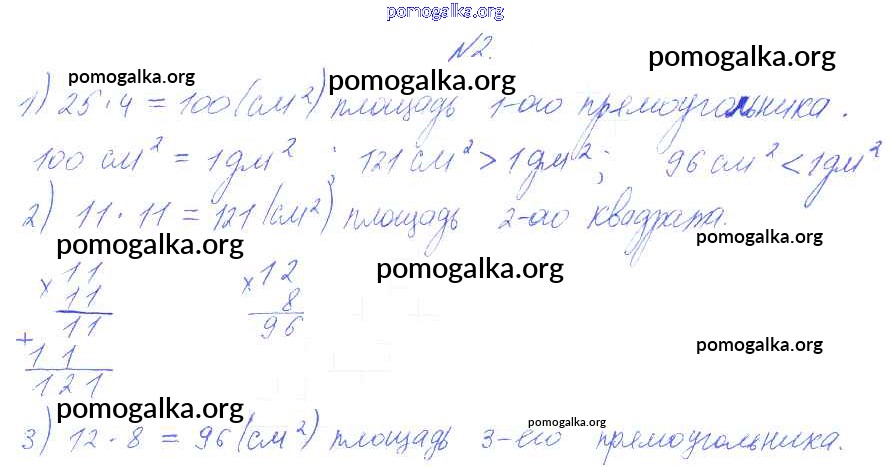 pomogalka.org
№2.
pomogalka.org pomogalka.org pomogalka.org
1) 25·4 = 100 (см²) площадь 1-ого прямоугольника.
100 см² = 1 дм² ; 121 см² > 1 дм² ; 96 см² < 1 дм²
2) 11·11 = 121 (см²) площадь 2-ого квадрата.
pomogalka.org pomogalka.org pomogalka.org
× 11 × 12
11 8
11 96
+ 11
121
pomogalka.org
pomogalka.org pomogalka.org
3) 12·8 = 96 (см²) площадь 3-его прямоугольника.